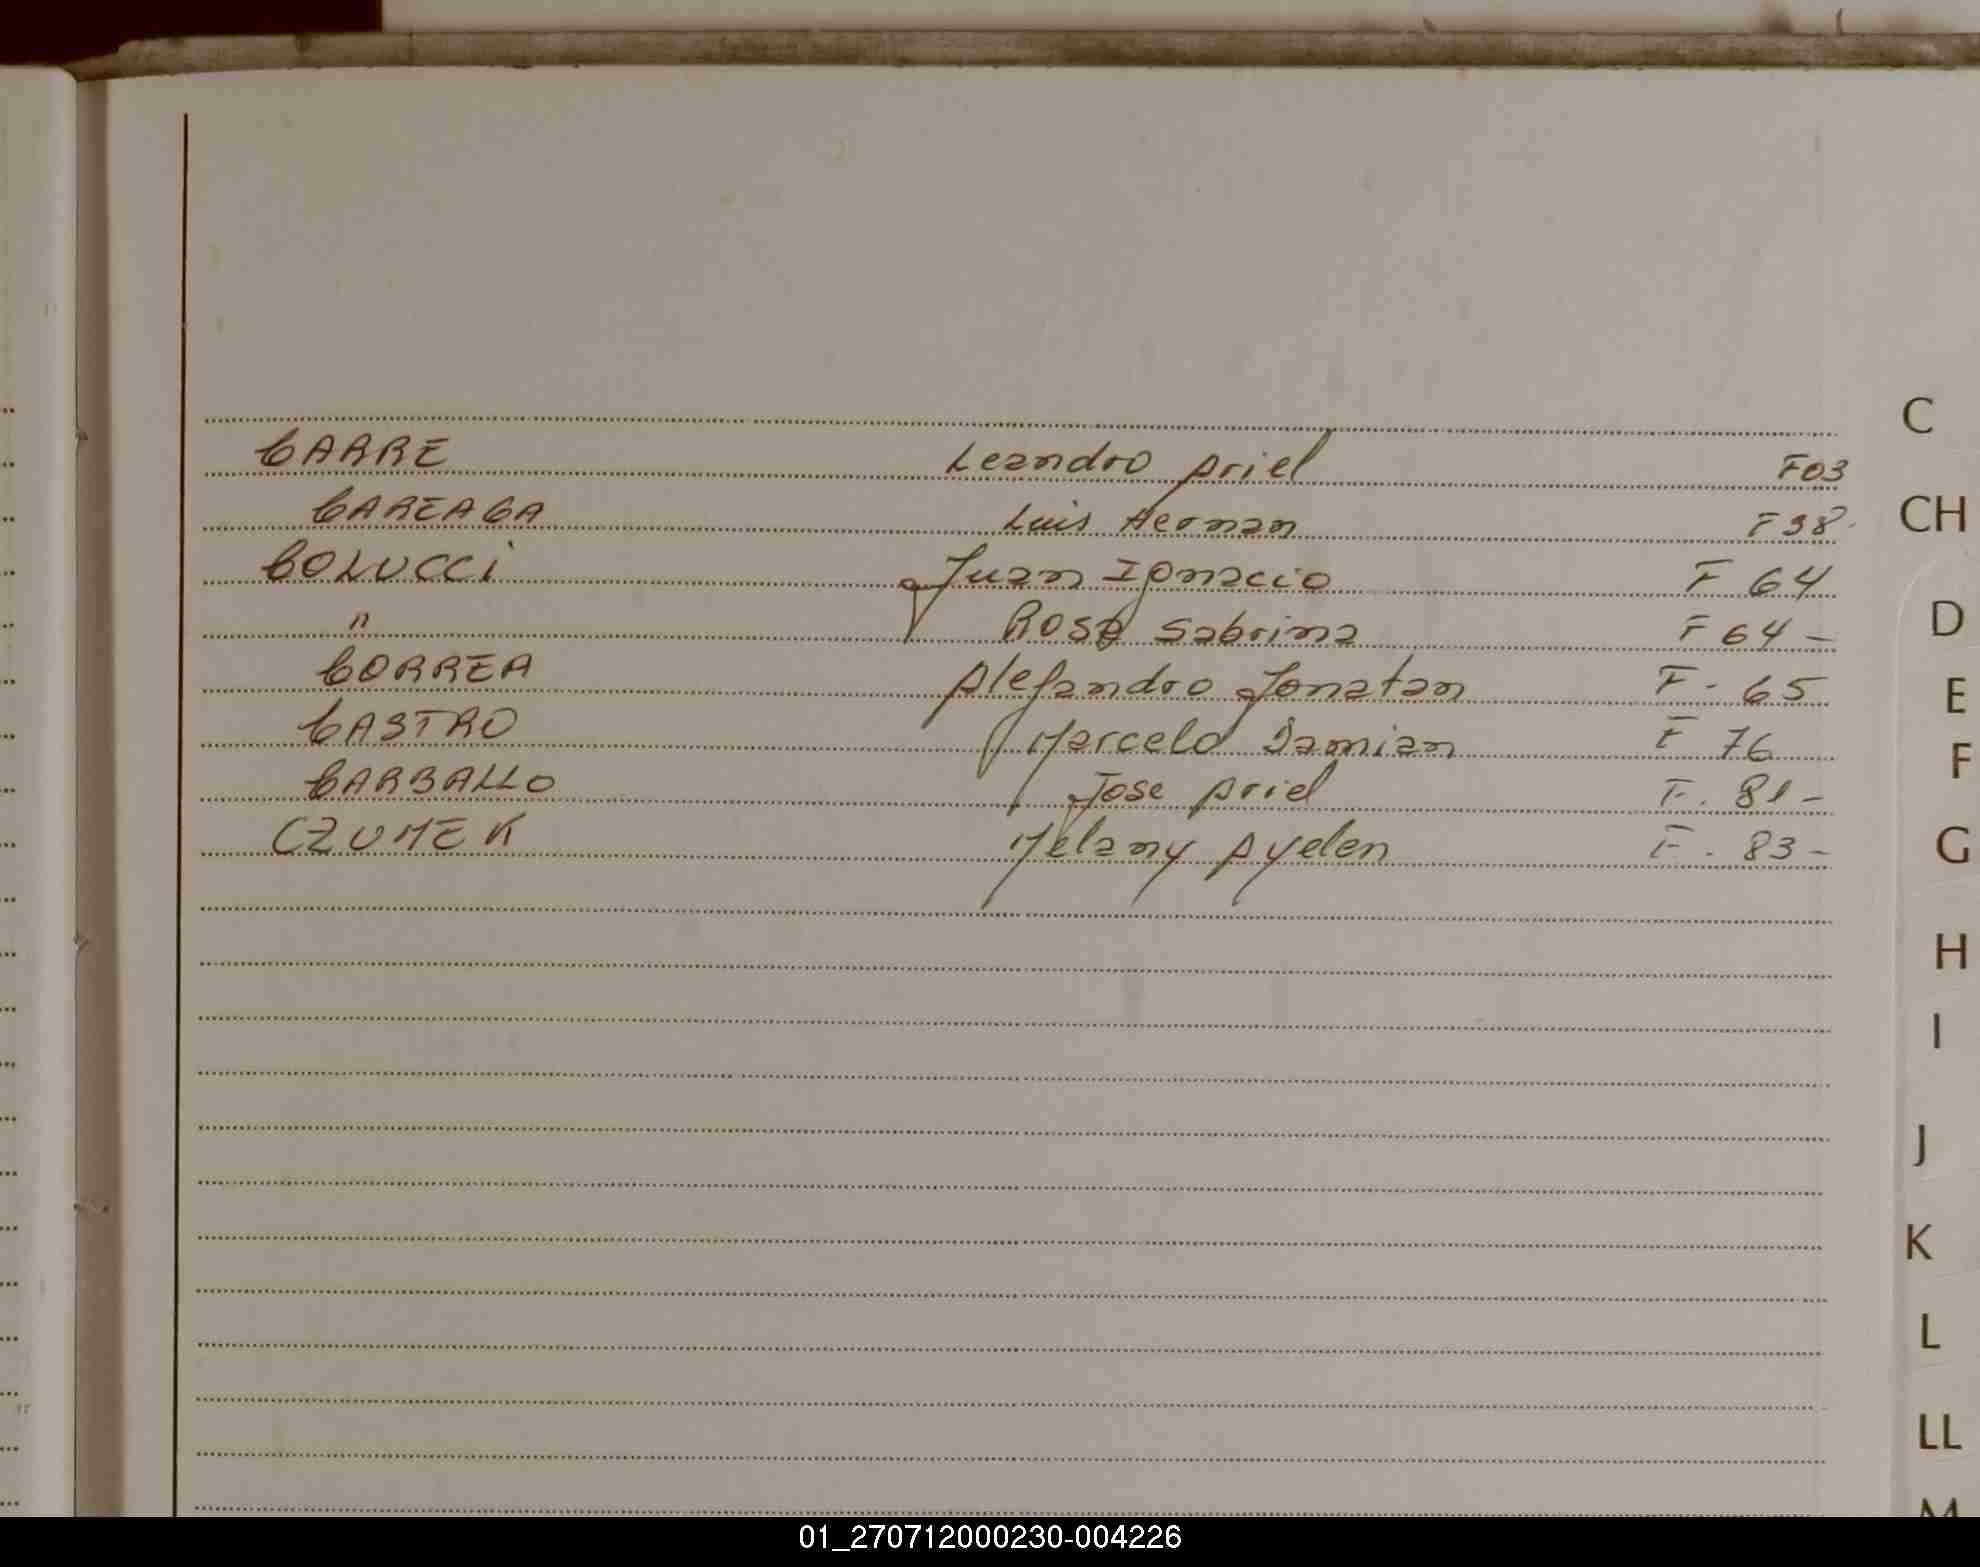 CARRE Leandro Ariel F03
CAREAGA Luis Hernan F38
COLUCCI Juan Ignacio F 64
" Rosa Sabrina F 64 -
CORREA Alejandro Jonatan F - 65
CASTRO Marcelo Damian F 76
CARBALLO Jose Ariel F. 81 -
CZUMEK Melany Ayelen F. 83 -
C
CH
D
E
F
G
H
I
J
K
L
LL
M
01_270712000230-004226